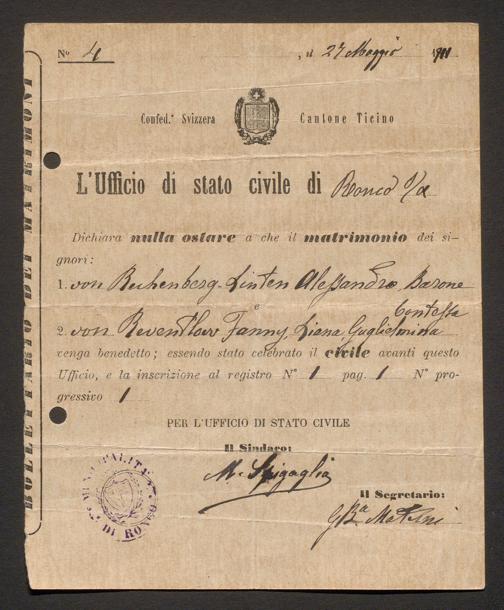 BOLLETTARIO DEI MATRIMONI
Nº 4 , il 27 Maggio 1911
Confed.ª Svizzera Cantone Ticino
L'Ufficio di stato civile di Ronco s/a
Dichiara nulla ostare a che il matrimonio dei si-
gnori:
1. von Rechenberg-Linten Alessandro Barone
e
Contessa
2. von Reventlow Fanny Liana Guglielmina
venga benedetto; essendo stato celebrato il civile avanti questo
Ufficio, e la inscrizione al registro Nº 1 pag. 1 Nº pro-
gressivo 1
PER L'UFFICIO DI STATO CIVILE
Il Sindaco:
M. Spigaglia
Il Segretario:
MUNICIPALITÀ DI RONCO